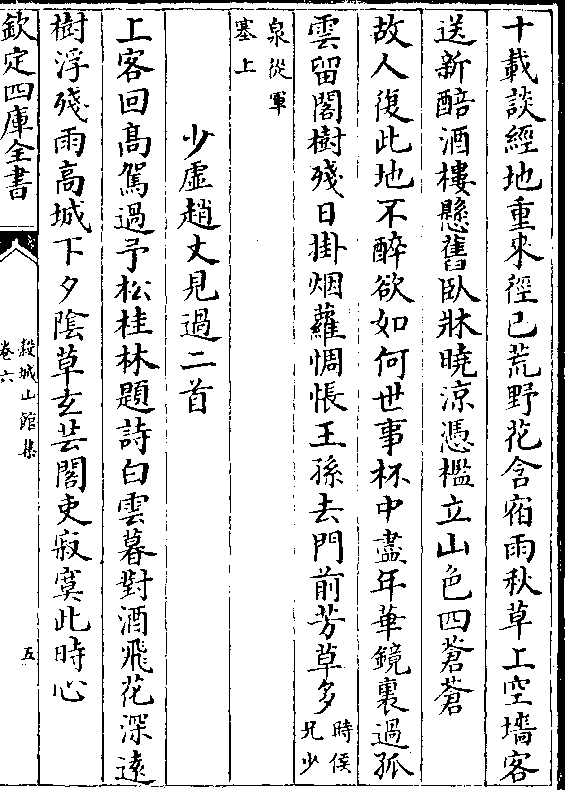 十載談經地重來徑已荒野花含宿雨秋草上空墻客
送新醅酒樓懸舊臥牀曉涼憑檻立山色四蒼蒼
故人復此地不醉欲如何世事杯中盡年華鏡裏過孤
雲留閣樹殘日掛烟蘿惆悵王孫去門前芳草多時侯
兄少
泉從軍
塞上
少虛趙丈見過二首
上客回高駕過予松桂林題詩白雲暮對酒飛花深遠
樹浮殘雨高城下夕陰草玄芸閣吏寂寞此時心
欽定四庫全書
穀城山館集
卷六
五